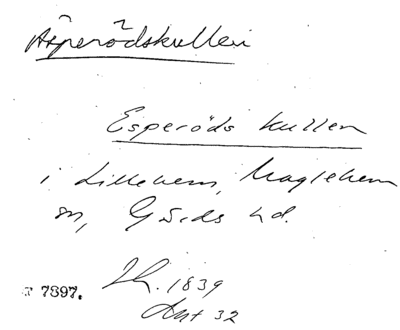 Äsperödskullen
Esperöds kullen
i Lillehem, Maglehem
sn, Gärds hd.
1839
Akt 32
7397.